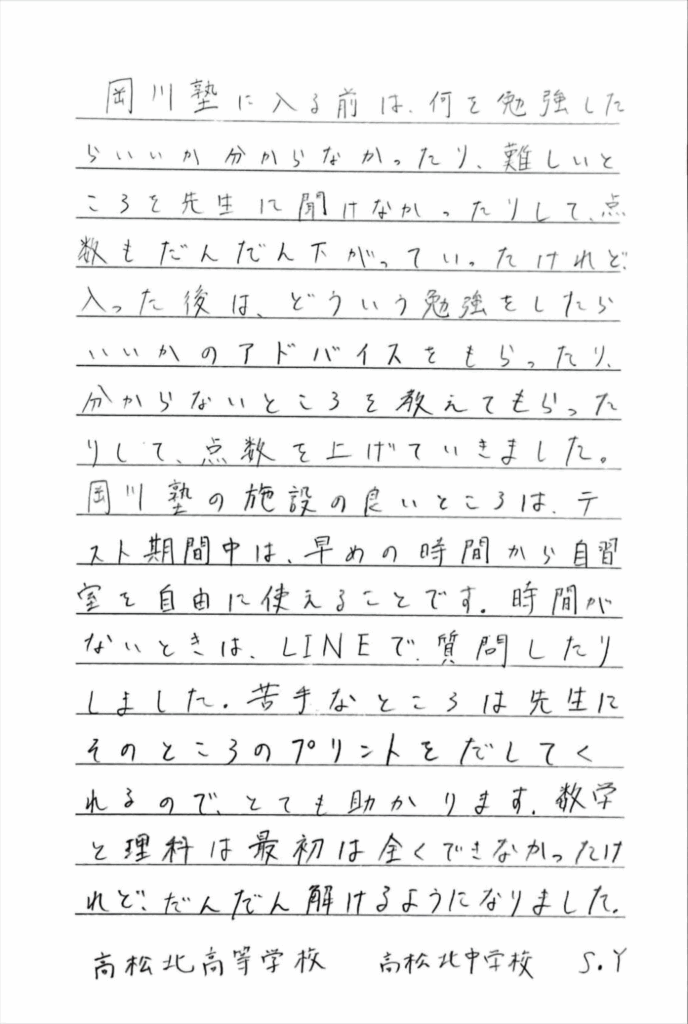 岡川塾に入る前は、何を勉強した
らいいか分からなかったり、難しいと
ころを先生に聞けなかったりして、点
数もだんだん下がっていったけれど、
入った後は、どういう勉強をしたら
いいかのアドバイスをもらったり、
分からないところを教えてもらった
りして、点数を上げていきました。
岡川塾の施設の良いところは、テ
スト期間中は、早めの時間から自習
室を自由に使えることです。時間が
ないときは、LINEで、質問したり
しました。苦手なところは先生に
そのところのプリントをだしてく
れるので、とても助かります。数学
と理科は最初は全くできなかったけ
れど、だんだん解けるようになりました。
高松北高等学校 高松北中学校 S.Y